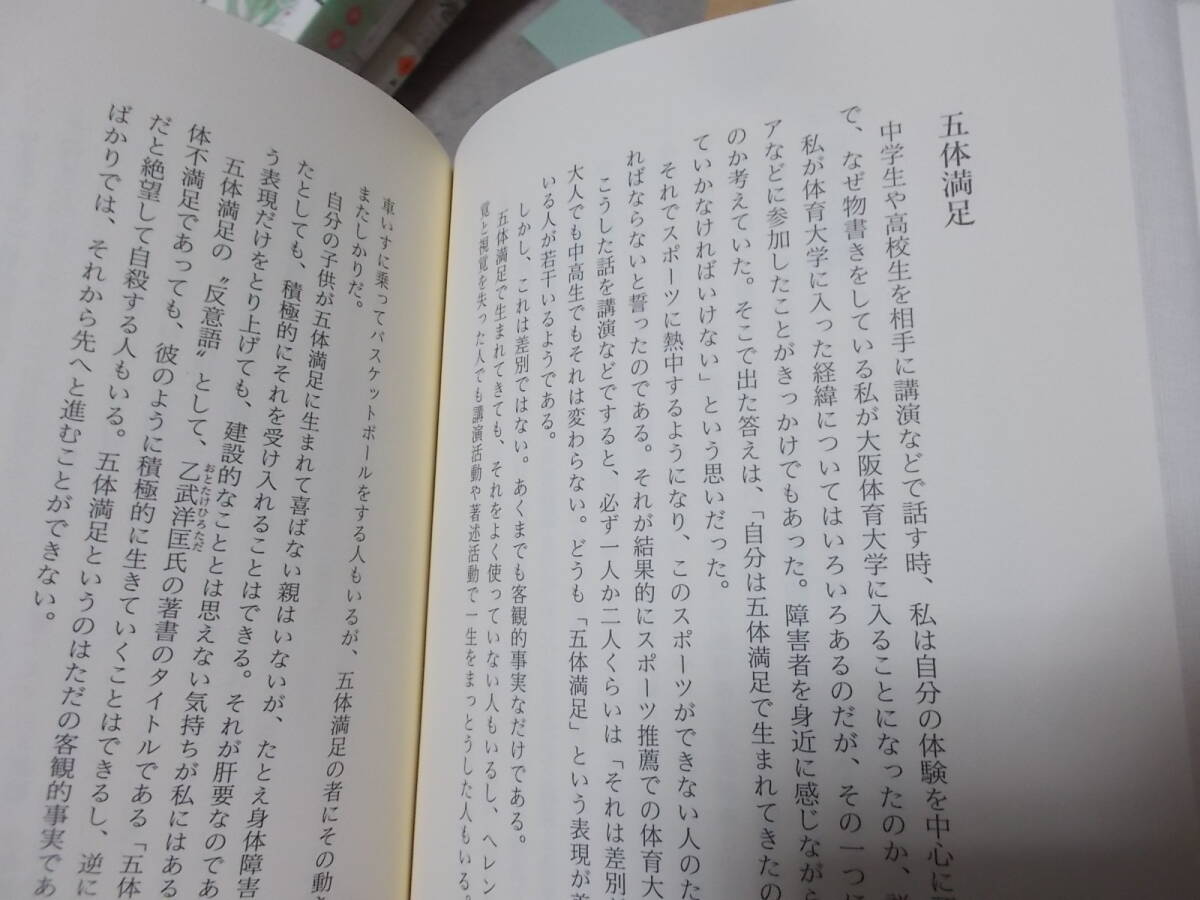 五体満足
中学生や高校生を相手に講演などで話す時、私は自分の体験を中心に
で、なぜ物書きをしている私が大阪体育大学に入ることになったのか、
私が体育大学に入った経緯についてはいろいろあるのだが、その一つに
アなどに参加したことがきっかけでもあった。障害者を身近に感じながら
のか考えていた。そこで出た答えは、「自分は五体満足で生まれてきたの
ていかなければいけない」という思いだった。
それでスポーツに熱中するようになり、このスポーツができない人のた
ればならないと誓ったのである。それが結果的にスポーツ推薦での体育大
こうした話を講演などですると、必ず一人か二人くらいは「それは差別
大人でも中高生でもそれは変わらない。どうも「五体満足」という表現が
いる人が若干いるようである。
しかし、これは差別ではない。あくまでも客観的事実なだけである。
五体満足で生まれてきても、それをよく使っていない人もいるし、ヘレン
覚と視覚を失った人でも講演活動や著述活動で一生をまっとうした人もいる。
車いすに乗ってバスケットボールをする人もいるが、五体満足の者にその動き
またしかりだ。
自分の子供が五体満足に生まれて喜ばない親はいないが、たとえ身体障害
たとしても、積極的にそれを受け入れることはできる。それが肝要なのであ
う表現だけをとり上げても、建設的なこととは思えない気持ちが私にはある
五体満足の〝反意語〟として、乙武洋匡氏の著書のタイトルである「五体
おとたけひろただ
体不満足であっても、彼のように積極的に生きていくことはできるし、逆に
だと絶望して自殺する人もいる。五体満足というのはただの客観的事実であ
ばかりでは、それから先へと進むことができない。